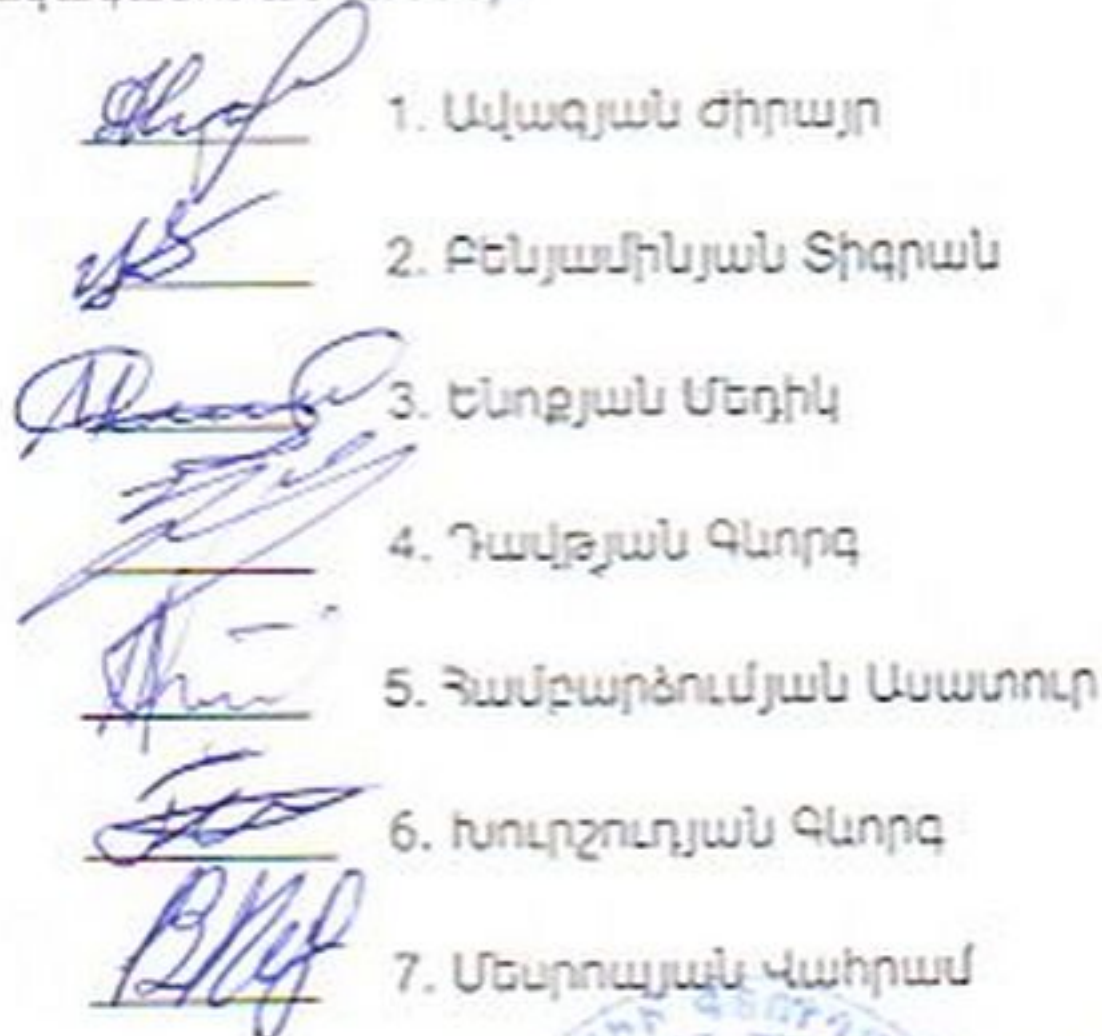 1. Ավագյան Ժիրայր
2. Բենյամինյան Տիգրան
3. Ենոքյան Մեդիկ
4. Դավթյան Գևորգ
5. Համբարձումյան Ասատուր
6. Խուրշուդյան Գևորգ
7. Մեսրոպյան Վահրամ